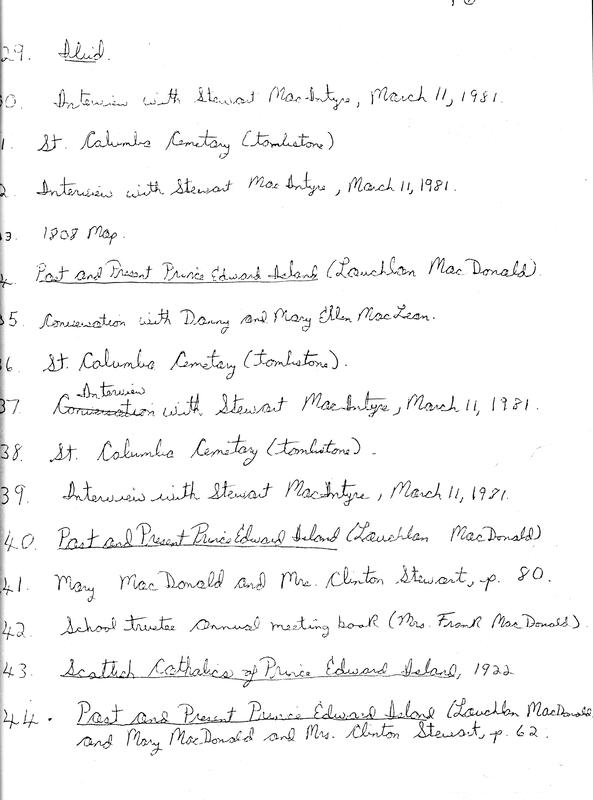 29. Ibid.
30. Interview with Stewart MacIntyre, March 11, 1981.
31. St. Columba Cemetary (tombstone)
32. Interview with Stewart MacIntyre, March 11, 1981.
33. 1808 Map.
34. Past and Present Prince Edward Island (Lauchlan MacDonald).
35. Conversation with Danny and Mary Ellen MacLean.
36. St. Columba Cemetary (tombstone).
Interview
37. Conversation with Stewart MacIntyre, March 11, 1981.
38. St. Columba Cemetary (tombstone).
39. Interview with Stewart MacIntyre, March 11, 1981.
40. Past and Present Prince Edward Island (Lauchlan MacDonald)
41. Mary MacDonald and Mrs. Clinton Stewart, p. 80.
42. School trustee annual meeting book (Mrs. Frank MacDonald).
43. Scottish Catholics of Prince Edward Island, 1922
44. Past and Present Prince Edward Island (Lauchlan MacDonald
and Mary MacDonald and Mrs. Clinton Stewart, p. 62.